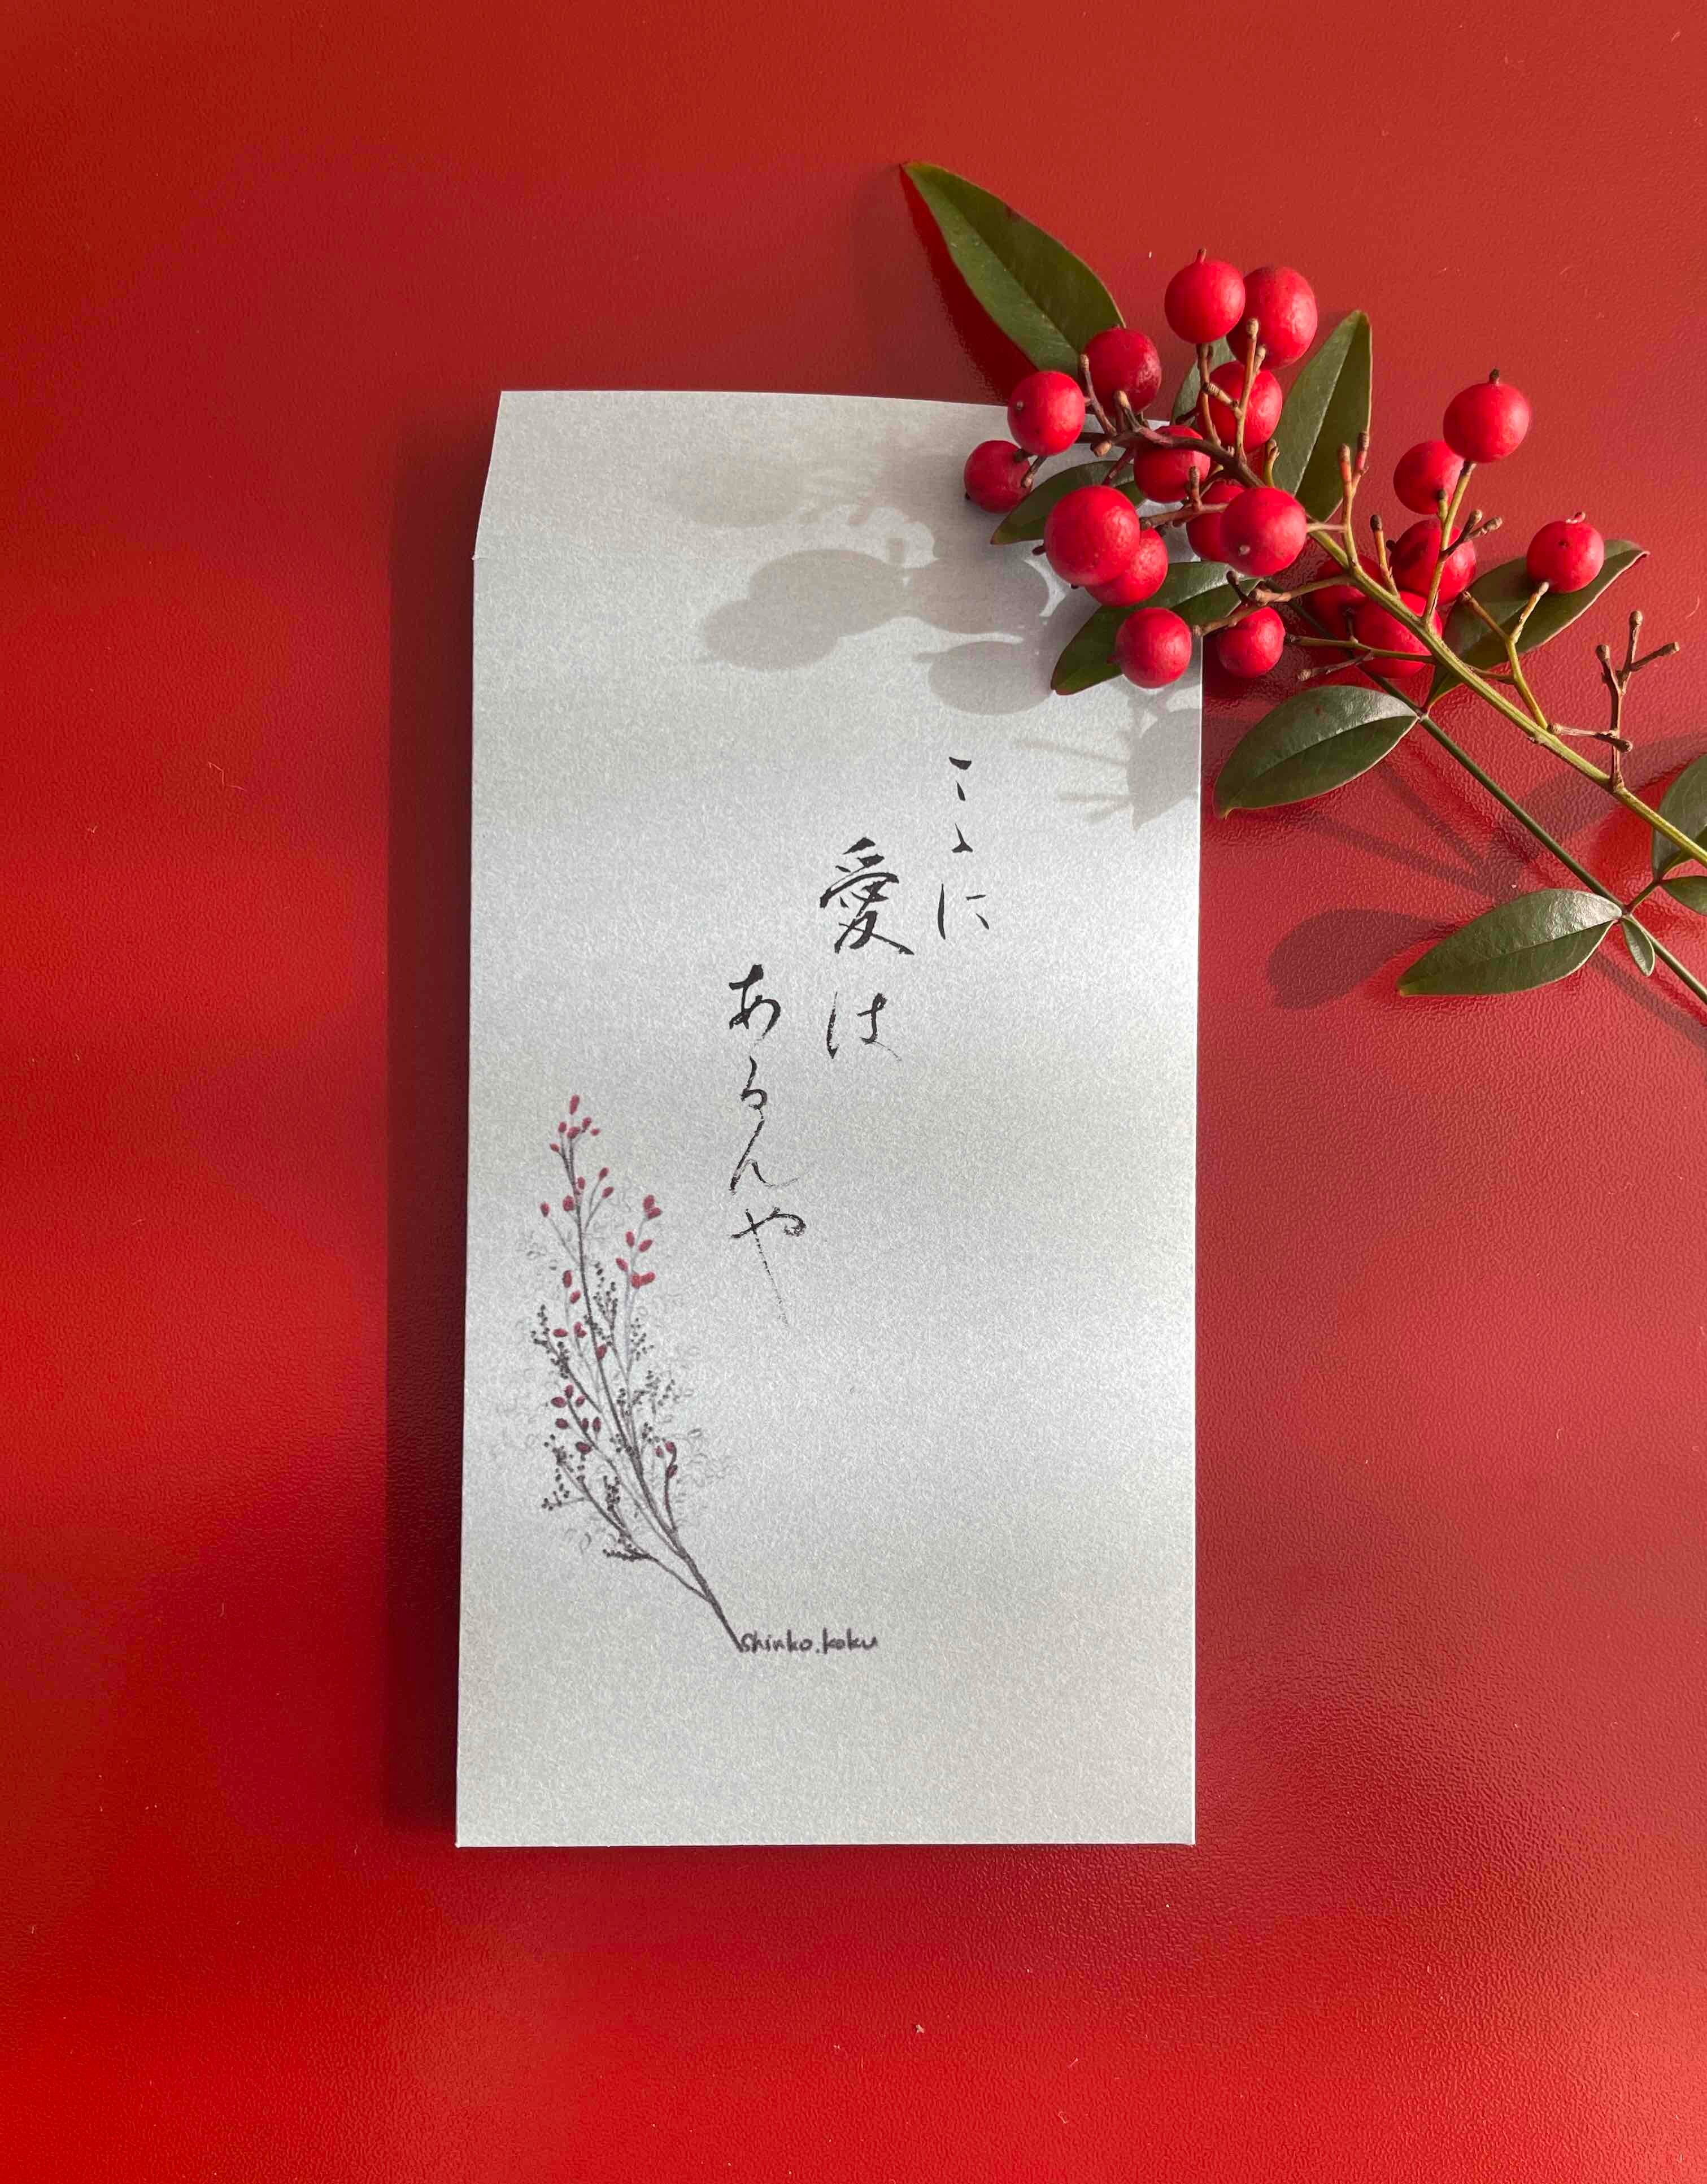 こゝに
愛は
あるんや
shinko.koku